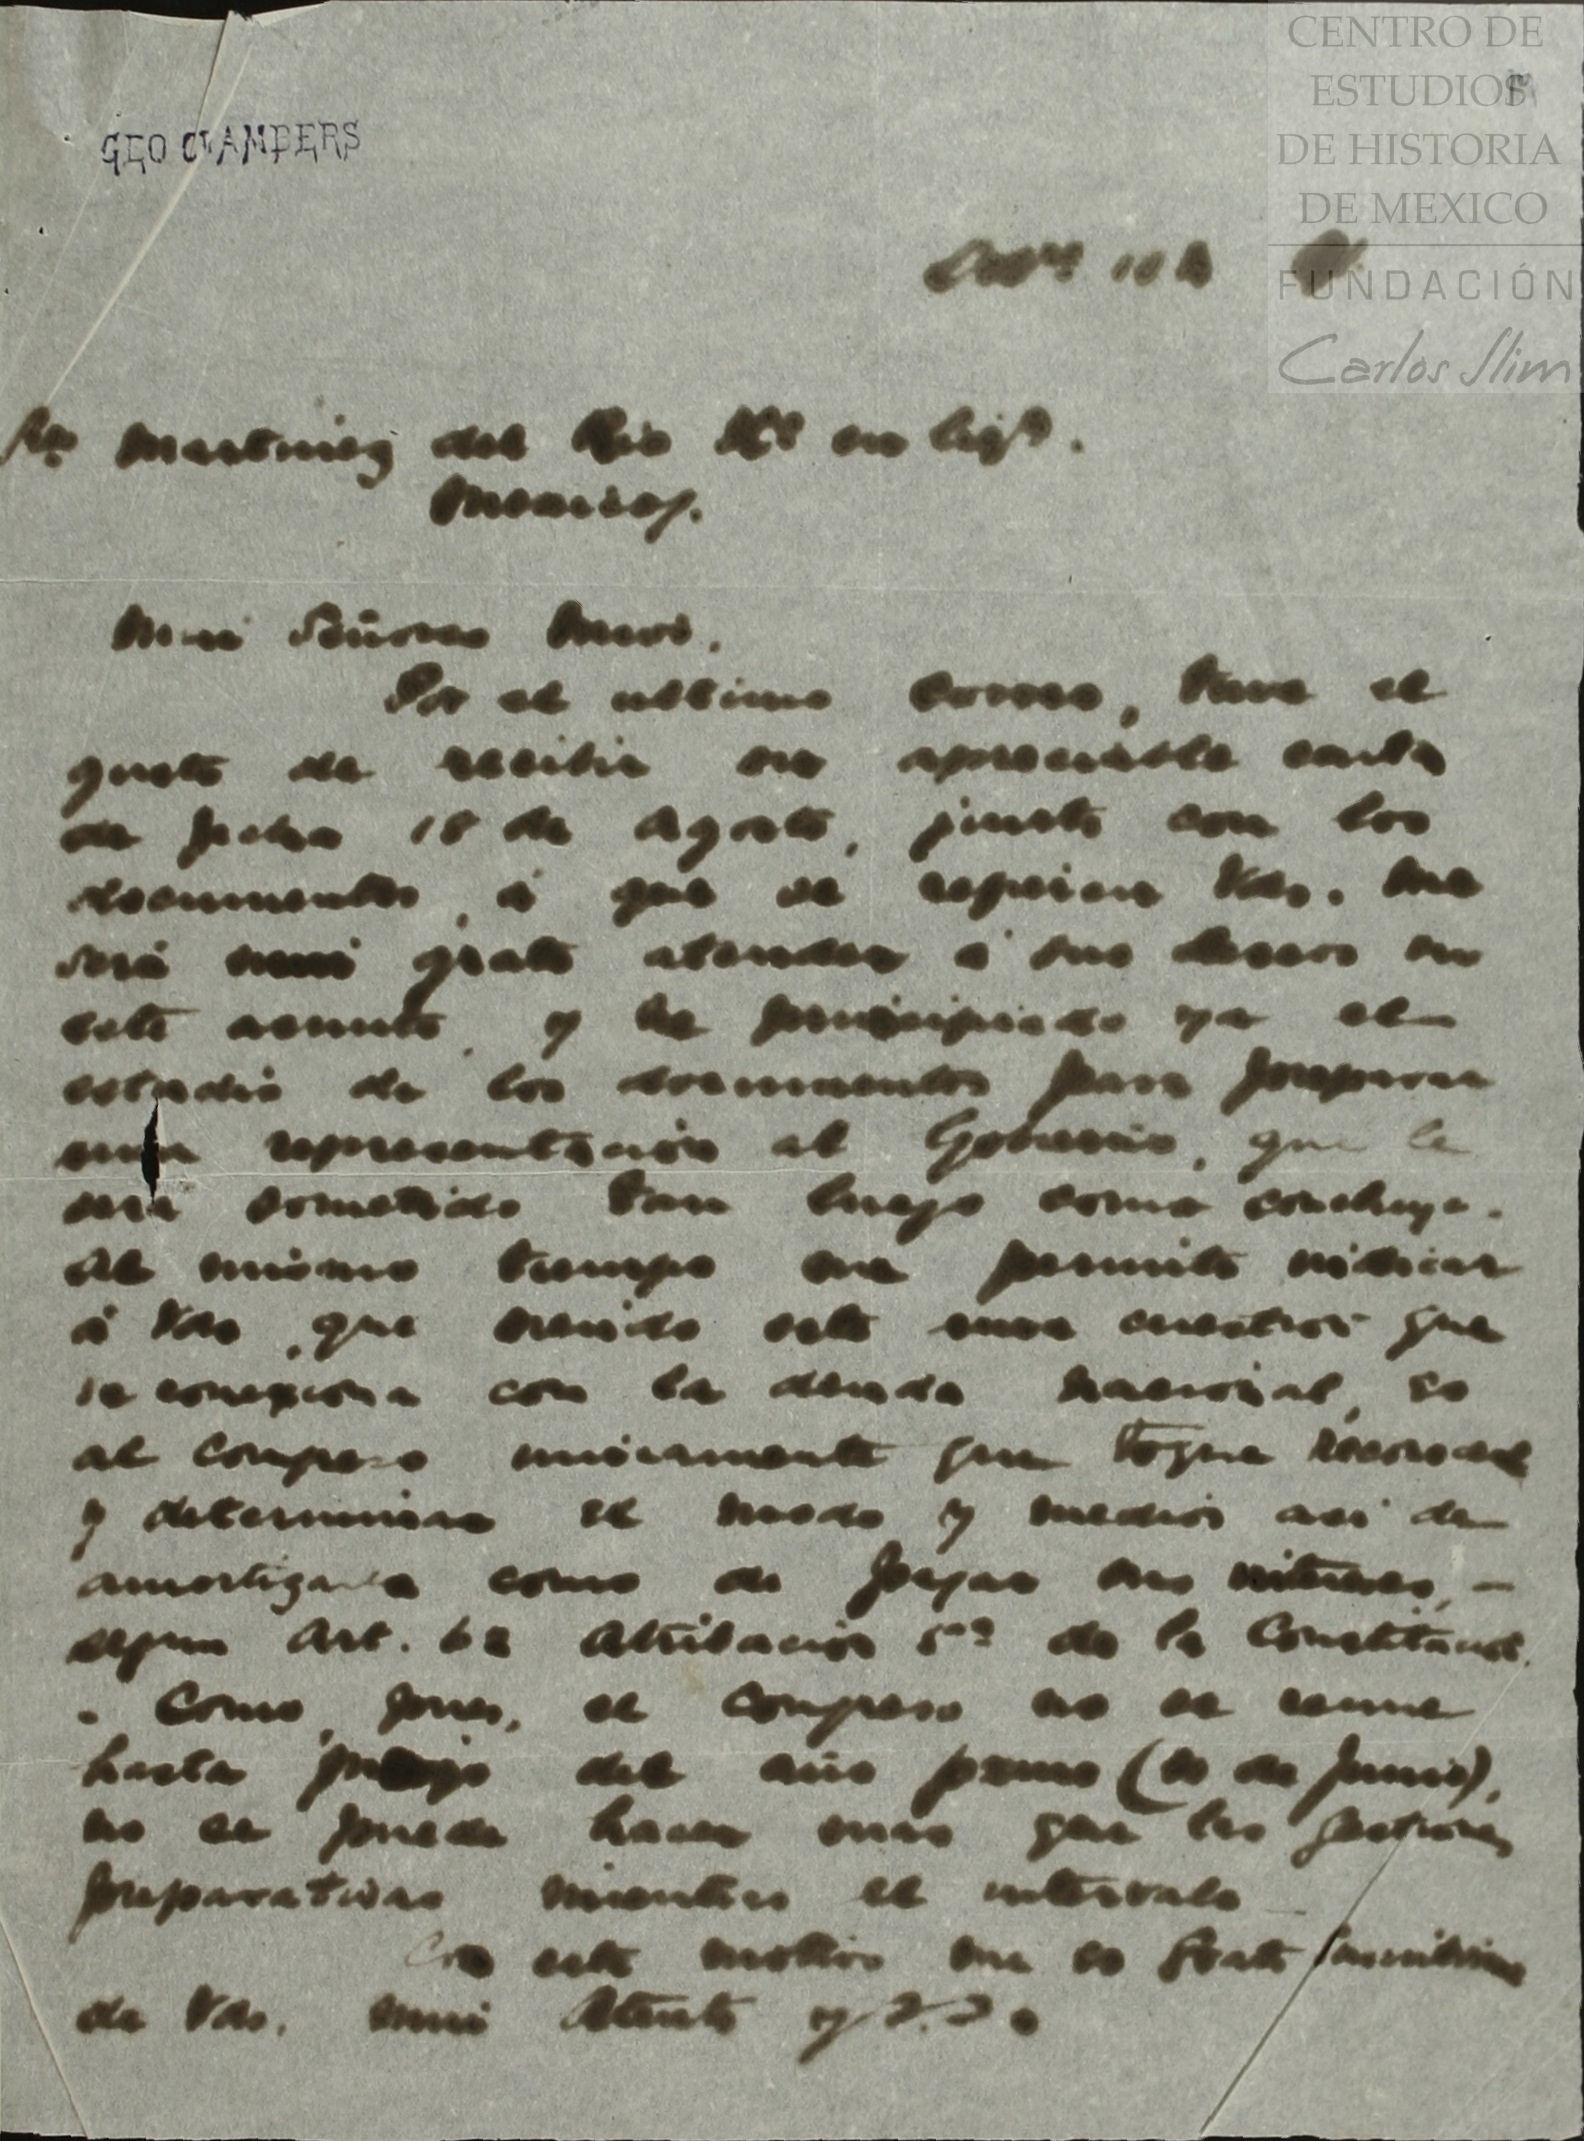 CENTRO DE
ESTUDIOS
DE HISTORIA
DE MEXICO
FUNDACIÓN
Carlos Slim
GEO CHAMBERS
Octre 10
Martinez del Rio Hs en liqn.
Mexico.
Mui Señores mios.
Por el ultimo correo, tuve el
gusto de recibir su apreciable carta
de fecha 18 de Agosto, junto con los
documentos, á que se refieren Vds. me
será mui grato atender á sus deseos en
este asunto, y he principiado ya el
estudio de los documentos para preparar
una representación al Gobierno, que le
será sometido tan luego como concluya.
Al mismo tiempo me permito indicar
á Vds, que siendo este una cuestion que
se conexiona con la deuda nacional, es
al Congreso unicamente que toque reconocer
y determinar el modo y medios asi de
amortizarla como de pagar sus intereses, -
segun Art. 68 Atribucion 5ª de la Constitucion.
. Como, pues, el congreso no se reune
hasta del año pxmo (1o de Junio),
no se puede hacer mas que las gestiones
preparativas mientras el intervalo
Con este motivo me es grato suscribirme
de Vds. mui Atento y S.S.